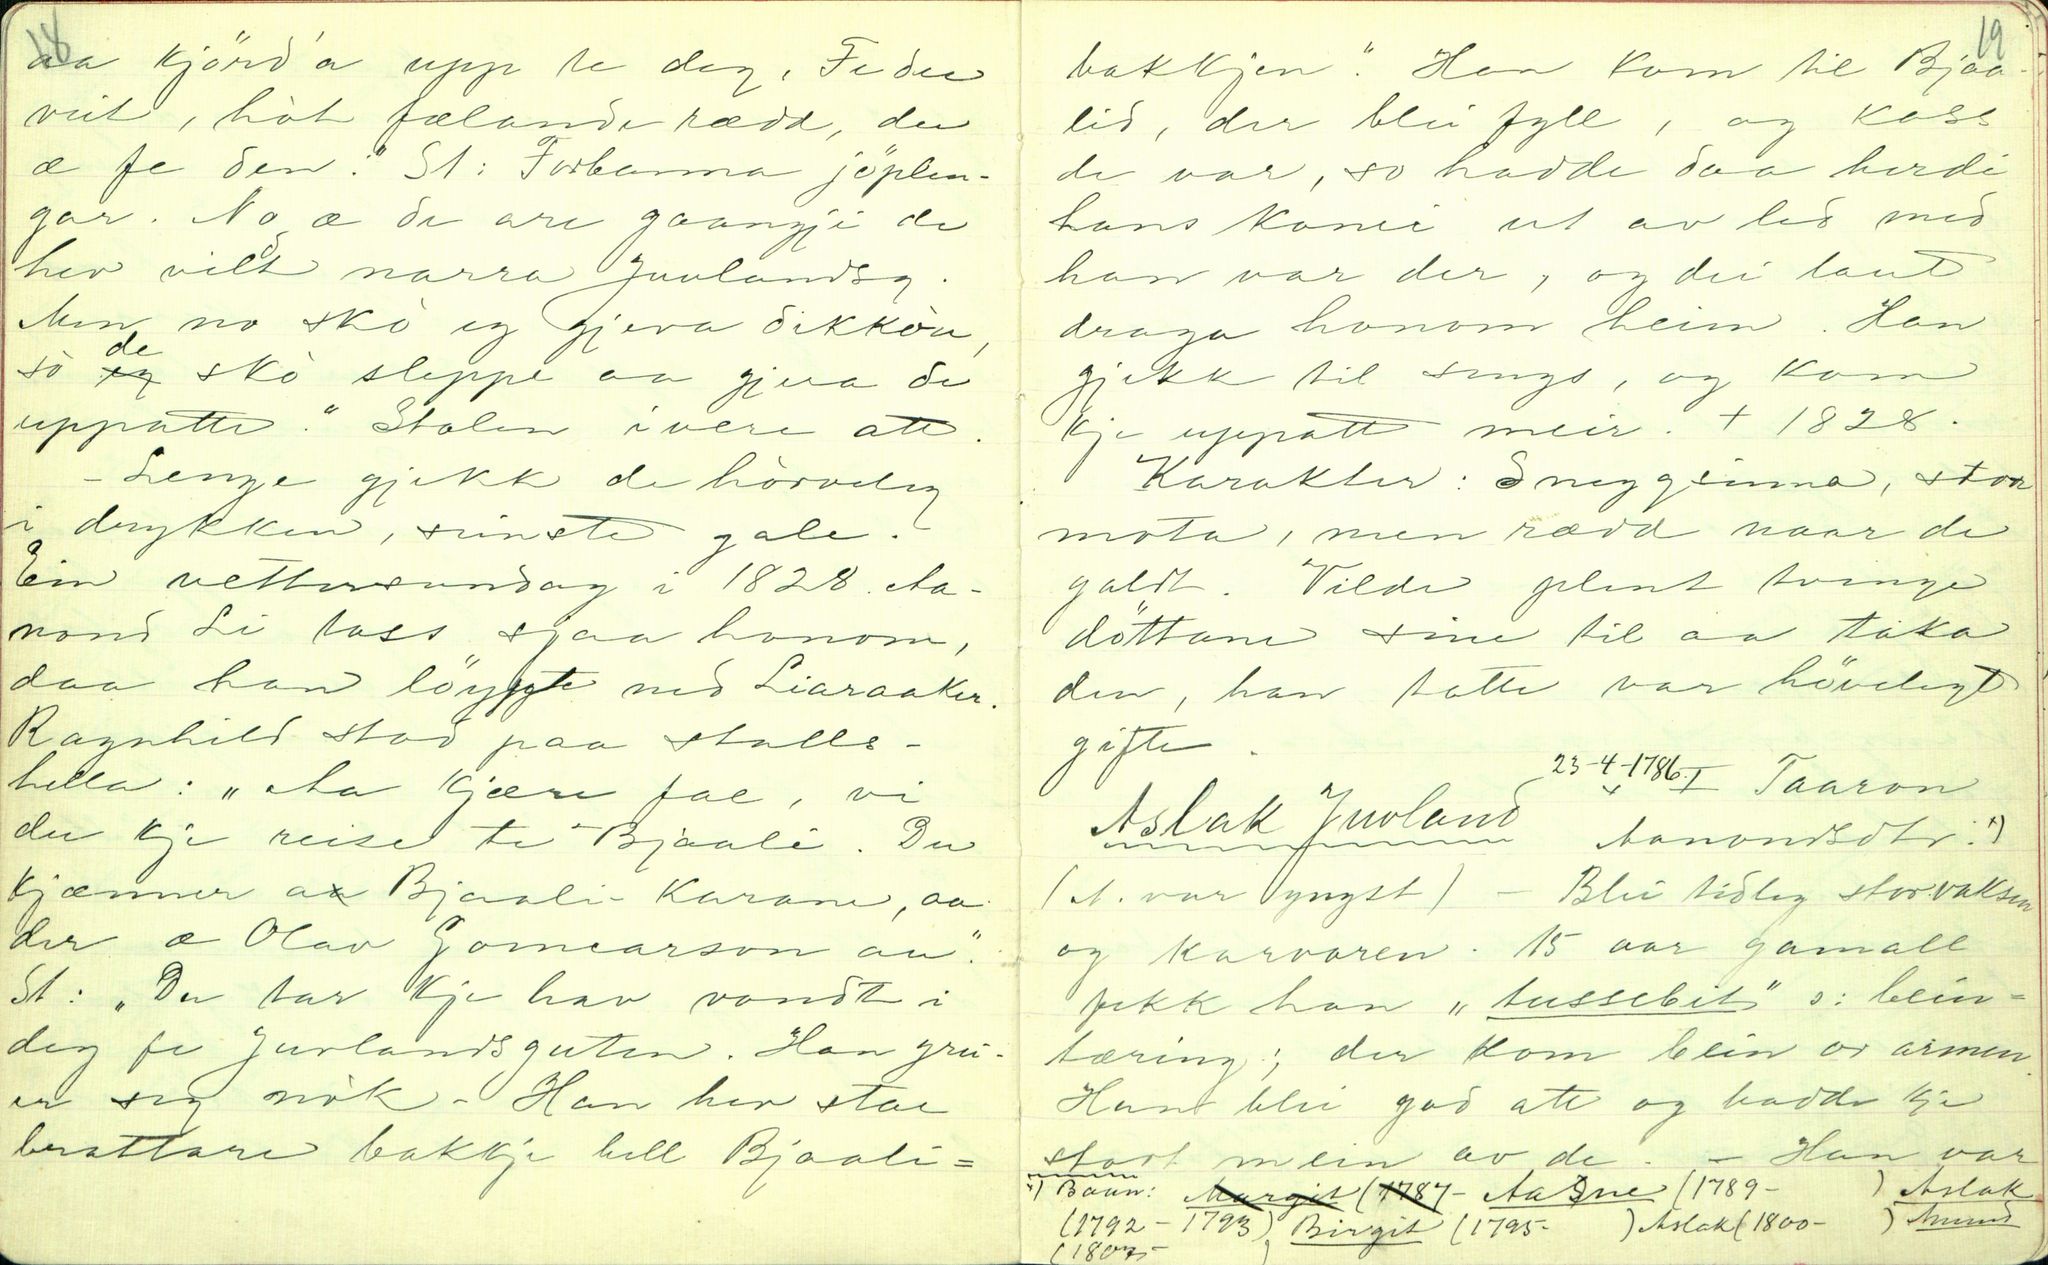 18
aa kjörd'a upp te deg, Fe dei
veit, hòt fælande rædd, du
æ fe den." St: Forbanna jöplen-
gar. No æ de are gaangji de
hev vilt narra Juvlandsg.
Men no skò eg gjeva dikkòn,
sò de skò sleppe aa gjera de
uppatte." Stolen ivere atte.
- Lenge gjekk de hòrveleg
i drykken, sinste gale.
Ein vettersundag i 1828. Aa-
nond Li tass sjaa honom,
daa han löypte ned Liaraaker.
Ragnhild stod paa stalls-
hella: „Aa kjære fae, vi
du kje reise te Bjaali. Du
kjænner aa Bjaali-karane, aa
der æ Olav Gomearson au."
St: „Du tar kje hav vondt i
deg fe Juvlandsguten. Han gru-
er seg nòk - Han hev stae
brattare bakkje hell Bjaali=
19
bakkjen." Han kom til Bjaa-
lid, der blei fyll, og koss
de var, so hadde daa herdi
hans komei ut av led med
han var der, og dei laut
draga honom heim. Han
gjekk til sengs, og kom
kje uppatt meir. + 1828.
Karakter: Snøggsinna, stor
mota, men rædd naar de
galdt. Vilde plent tvinge
döttane sine til aa taka
den, han totte var höveligt
gifte.
Aslak Juvland 23-4-1786 I Taaron
Aanondsdtr. x)
(A. var yngst) - Blei tidleg storvaksen
og karvoren. 15 aar gamall
fekk han „tussebit" ɔ: bein=
tæring; der kom bein or armen.
Han blei god atte og hadde kje
stort mein av de. - Han var
x) Baan: Margit (1787- Aasne (1789- ) Aslak
(1792 - 1793) Birgit (1795- ) Aslak (1800- ) Anund
(1807- )